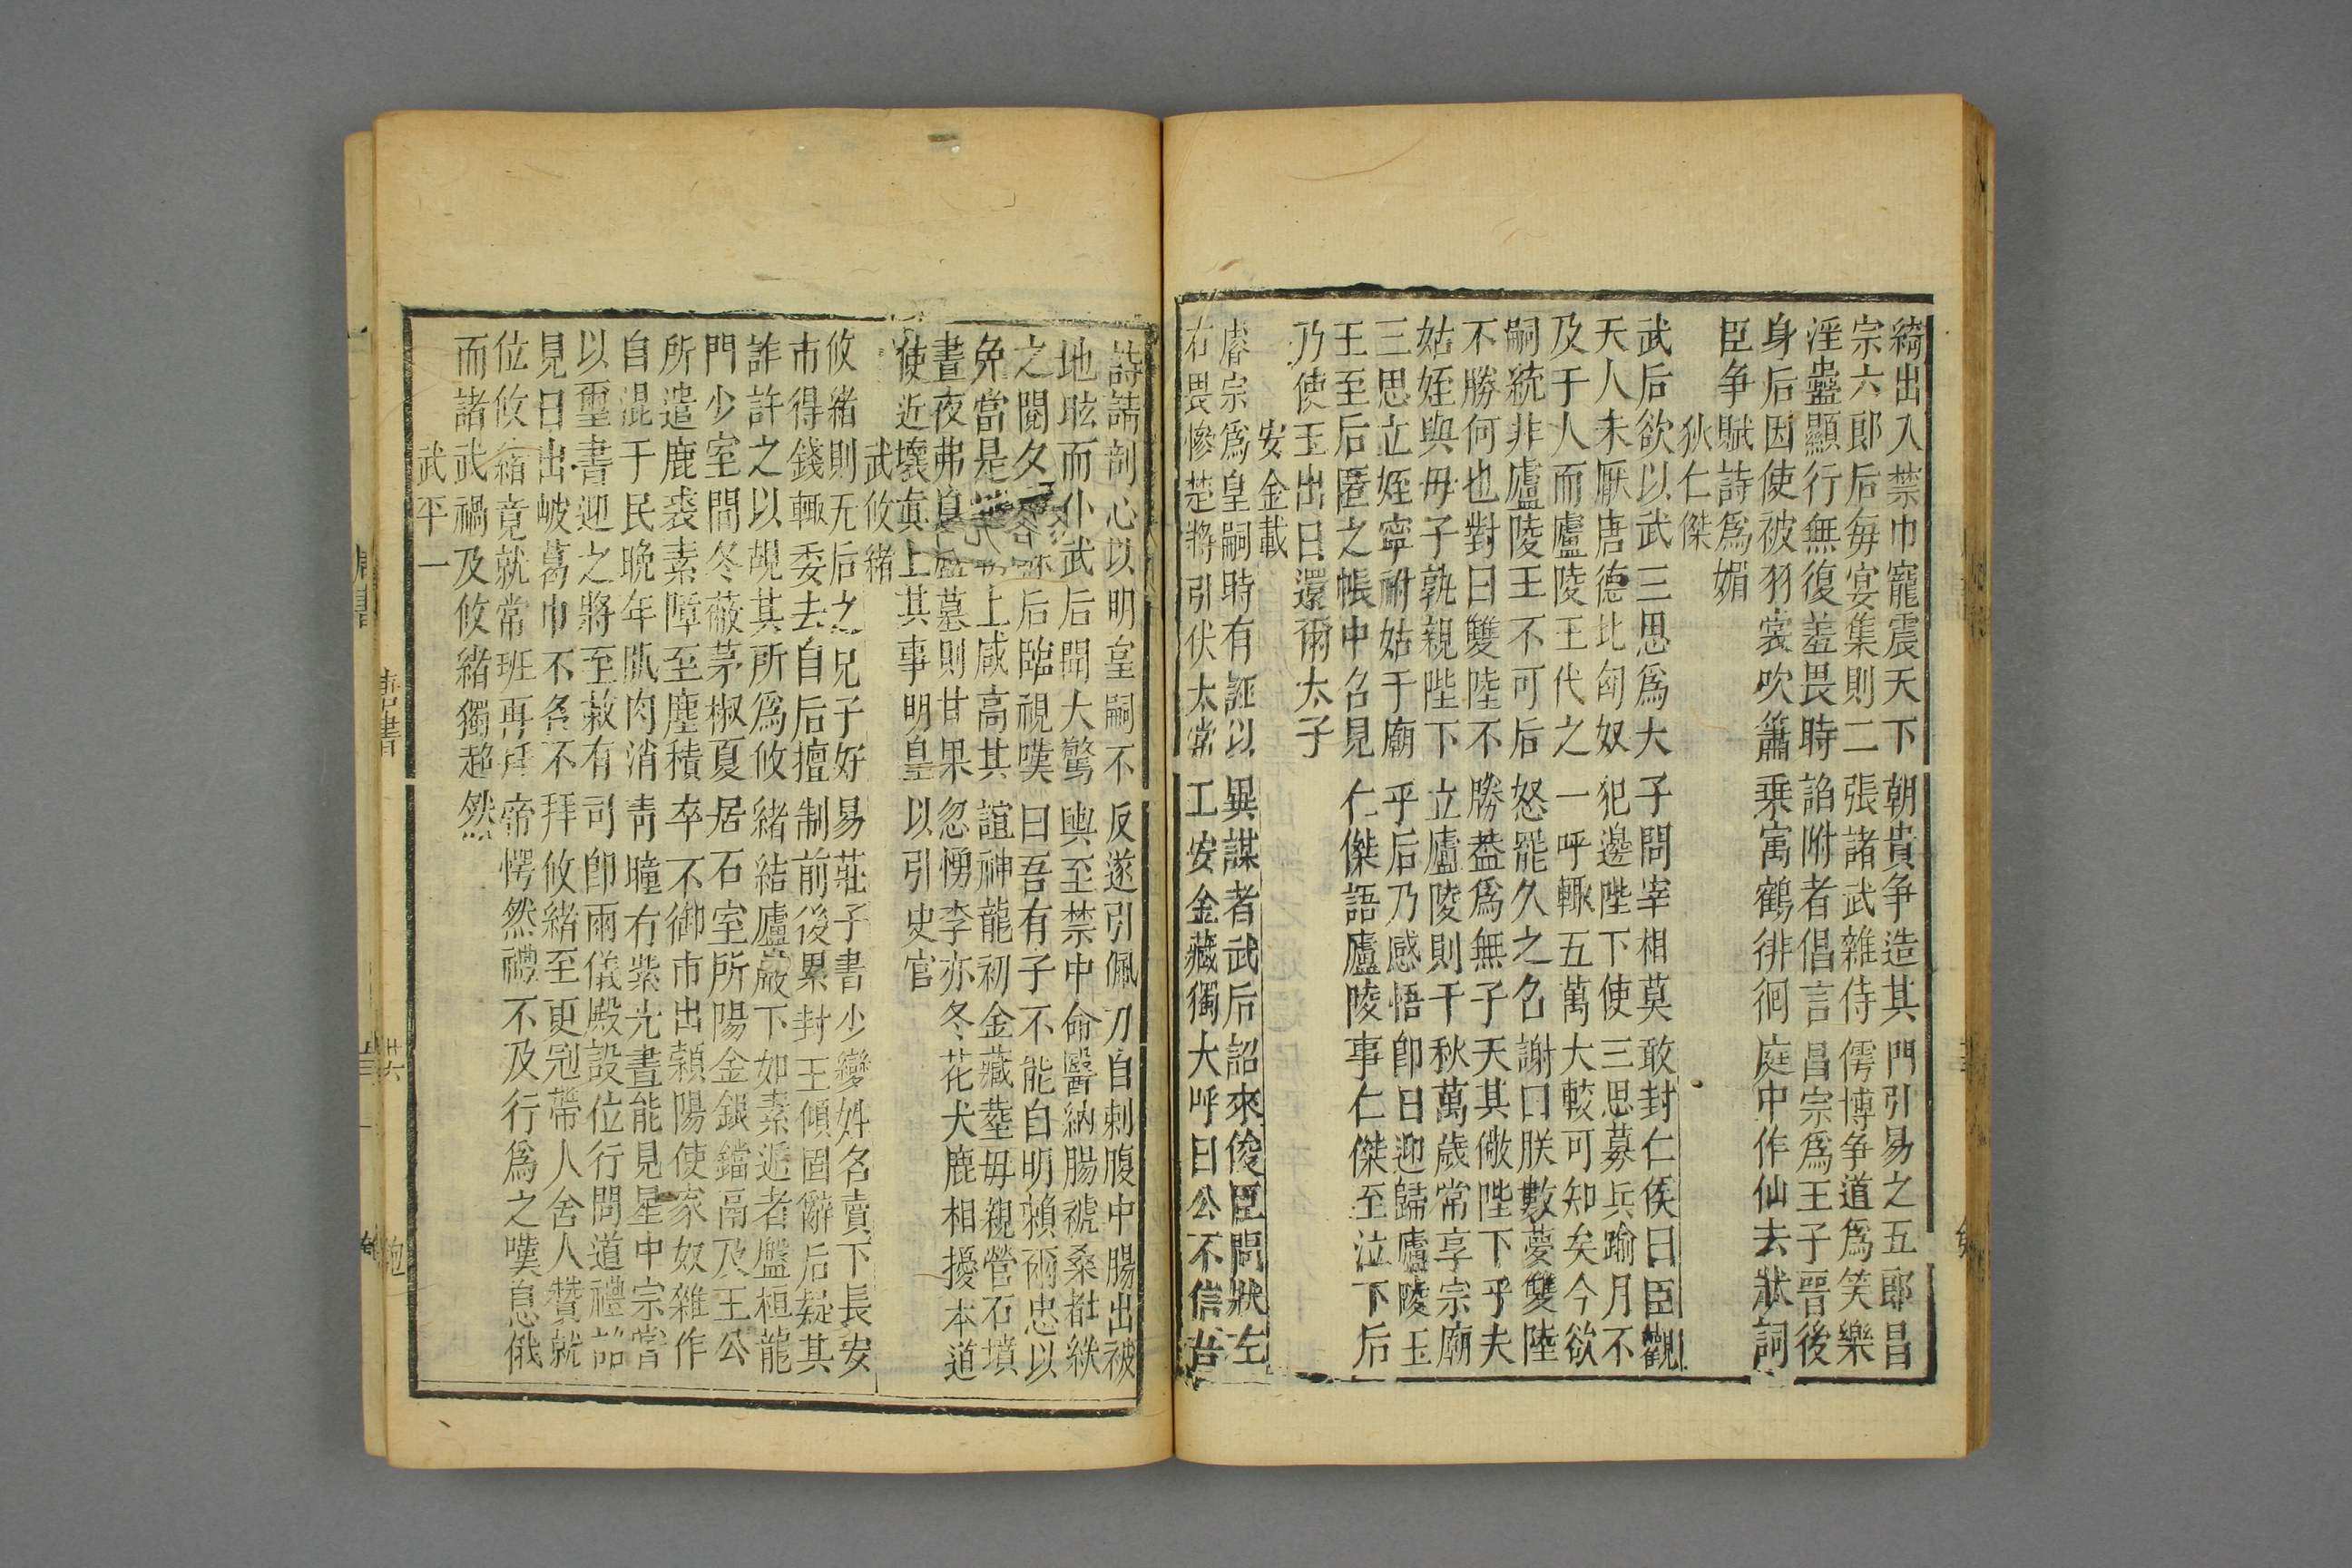 綺出入禁巾寵震天下朝貴争造其門引易之五郎昌
宗六郎后每宴集則二張諸武雜侍㑥博争道爲笑樂
淫蠱顯行無復羞畏時諂附者倡言昌宗爲王子晉後
身后因使被羽裳吹簫乗寓鶴徘徊庭中作仙去狀詞
臣争賦詩爲媚
狄仁傑
武后欲以武三思爲大子問宰相莫敢封仁傑曰臣觀
天人未厭唐德比匈奴犯邊陛下使三思募兵踰月不
及于人而廬陵王代之一呼輙五萬大較可知矣今欲
嗣統非廬陵王不可后怒罷久之名謝曰朕數夢雙陸
不勝何也對曰雙陸不勝葢爲無子天其儆陛下乎夫
姑姪與母子孰親陛下立廬陵則千秋萬歲常享宗廟
三思立姪寧祔姑于廟乎后乃感悟卽日迎歸廬陵王
王至后匿之帳中名見仁傑語廬陵事仁傑至泣下后
乃使王出曰還爾太子
安金載
睿宗爲皇嗣時有誣以異謀者武后詔來俊臣問狀左
右畏慘楚將引伏太常工安金藏獨大呼曰公不信吾
請剖心以明皇嗣不反遂引佩刀自剌腹中腸出被
地眩而仆武后聞大驚輿至禁中命醫納腸褫桑𣗥紩
之閱夕后臨視嘆曰吾有子不能自明賴爾忠以
免當是上咸高其誼神龍初金藏塟毋親營石墳
晝夜弗息墓則甘果忽慂李亦冬花犬鹿相擾本道
使近壤眞上其事明皇以引史官
武攸緒
攸緒則天后之兄子好易莊子書少變姓名賣下長安
市得錢輙委去自后擅制前後累封王傾固辭后疑其
詐許之以覘其所爲攸緒結廬巖下如素遁者盤桓龍
門少室間冬蔽茅椒夏居石室所陽金銀鐺鬲及王公
所遣鹿裘素障至塵積卒不御市出潁陽使家奴雜作
自混于民晚年肌肉消靑瞳有紫光晝能見星中宗嘗
以璽書迎之將至敕有司卽兩儀殿設位行問道禮詔
見日出岥葛巾不名不拜攸緒至更冠帶人舍人贊就
位攸緒竟就常班再拜帝愕然禮不及行爲之嘆息俄
而諸武禍及攸緒獨超然
武平一
唐書
廿六